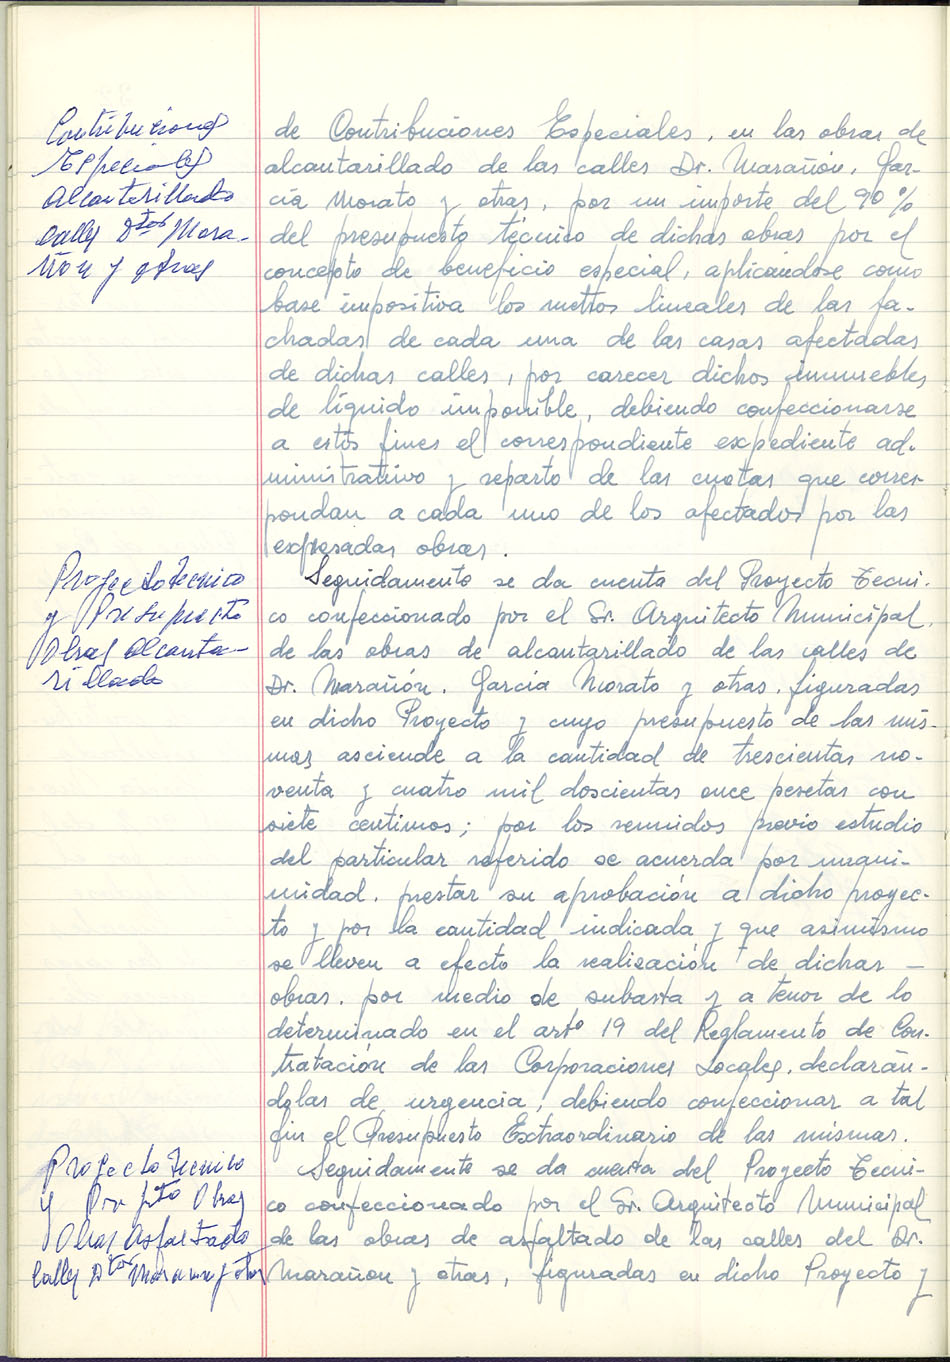 Contribuciones
Especiales
alcantarillado
calles Dtor Mora-
ñón y otras
de Contribuciones Especiales, en las obras de
alcantarillado de las calles Dr. Marañón, Gar-
cía Morato y otras, por un importe del 90%
del presupuesto técnico de dichas obras por el
concepto de beneficio especial, aplicándose como
base impositiva los mettos lineales de las fa-
chadas de cada una de las casas afectadas
de dichas calles, por carecer dichos inmuebles
de líquido imponible, debiendo confeccionarse
a estos fines el correspondiente expediente ad-
ministrativo y reparto de las cuotas que corres-
pondan a cada uno de los afectados por las
expresadas obras.
Proyecto tecnico
y Presupuesto
Obras alcanta-
rillado
Seguidamente se da cuenta del Proyecto Tecni-
co confeccionado por el Sr. Arquitecto Municipal,
de las obras de alcantarillado de las calles de
Dr. Marañón, García Morato y otras, figuradas
en dicho Proyecto y cuyo presupuesto de las mis-
mas asciende a la cantidad de trescientas no-
venta y cuatro mil doscientas once pesetas con
siete centimos; por los reunidos previo estudio
del particular referido se acuerda por unani-
midad, prestar su aprobación a dicho proyec-
to y por la cantidad indicada y que asimismo
se lleven a efecto la realización de dichas —
obras, por medio de subasta y a tenor de lo
determinado en el artº 19 del Reglamento de Con-
tratación de las Corporaciones Locales, declarán-
dolas de urgencia, debiendo confeccionar a tal
fin el Presupuesto Extraordinario de las mismas.
Proyecto tecnico
y Obras
Obras Asfaltado
calles Dtor Marañon y otras
Seguidamente se da cuenta del Proyecto Tecni-
co confeccionado por el Sr. Arquitecto Municipal
de las obras de asfaltado de las calles del Dr.
Marañon y otras, figuradas en dicho Proyecto y